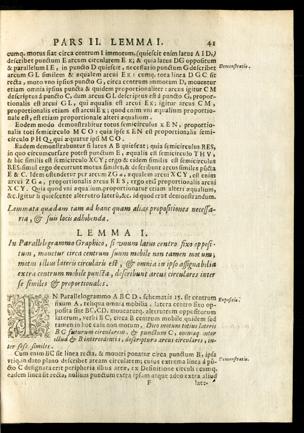 PARS II. LEMMA I. 41
cumq. motus fiat circa centrum I immotum, (quiescit enim latus A I D,)
describet punctum E arcum circularem E x; & quia latus DG oppositum
& parallelum IE, in puncto D quiescit, necessario punctum G describet
arcum GL similem & aqualem arcui Ex: cumq. tota linea DGC sit
recta, moto vno ipsius puncto G, circa centrum immotum D, mouentur
etiam omnia ipsius puncta & quidem proportionaliter: arcus igitur CM
descriptus à puncto C, dum arcus GL describitur est à puncto G, proportionalis
est arcui GL, qui aqualis est arcui Ex; igitur arcus CM,
proportionalis etiam est arcui Ex; quod enim vni aqualium proportionale
est, est etiam proportionale alteri aqualium.
Demonstratio.
Eodem modo demonstrabitur totus semicirculus x EN, proportionalis
toti semicirculo MCO: quia ipse x EN est proportionalis semicirculo
PHQ, qui aquatur ipsi MCO.
Eadem demonstrabuntur si latus AB quiescat; quia semicirculus RES,
in quo circumducitur punctum E, aqualis est semicirculo THV,
& hic similis est semicirculo XCY; ergo & eidem similis est semicirculus
RES simul ergo decurrunt motus similes, & describent arcus similes puncta
E & C. Idem ostendetur per arcum ZG
arcui ZG, proportionalis arcus RES, ergo etiam proportionalis arcui
XCY. Quia quod vni aqualium proportionatur etiam alteri aqualium,
&c. igitur si quiescente alterutro latere, &c. id quod erat demonstrandum.
Lemmata quædam tam ad hanc quam alias propositiones necessaria,
& suis locis adhibenda.
LEMMA I.
In Parallelogrammo Graphico, si vnum latus centro fixo oppositum,
mouetur circa centrum suum mobile non tamen motum,
motus illius lateris circularis est, & omnia in ipso assignabilia
extra centrum mobile puncta, describunt arcus circulares inter
se similes & proportionales.
IN Parallelogrammo ABCD, schematis 15. sit centrum
fixum A, reliqua omnia mobilia. latera centro fixo opposita
sint BC, CD, moueatur, alterutrum oppositorum
laterum, verbi BC, circa B centrum mobile quidem sed
tamen in hoc casu non motum, Dico motum totius lateris
BC futurum circularem, & punctum C, omniaq inter
illud & B intermedia, descriptura arcus circulares, inter
sese similes.
Expositio.
Cum enim BC sit linea recta, & moueri ponatur circa punctum B, ipsa
vtiq. in dato plano describet aream circularem; cuius extrema linea à puncto
C designata erit peripheria illius areæ, ex Definitione circuli; cumq.
eadem linea sit recta, nullius punctum extra ipsam atque adeo extra aliud
Demonstratio.
F